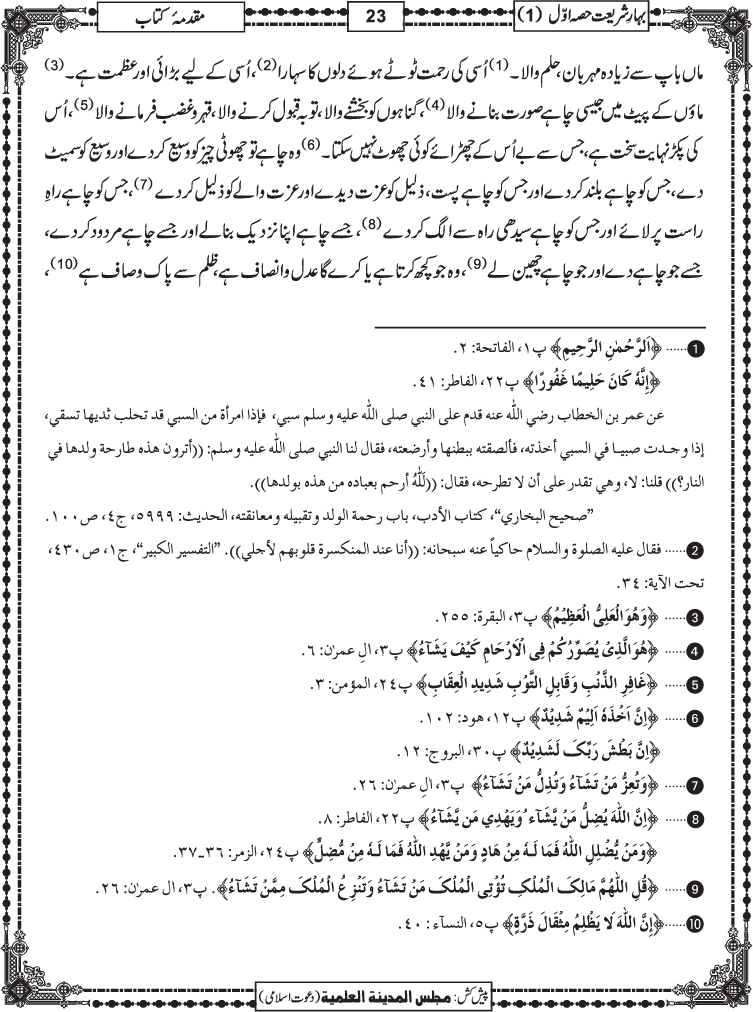 بہارِ شریعت حصہ اوّل (1)
23
مقدمۂ کتاب
ماں باپ سے زیادہ مہربان، حلم والا۔(1) اُسی کی رحمت ٹوٹے ہوئے دلوں کا سہارا(2)، اُسی کے لیے بڑائی اور عظمت ہے۔(3)
ماؤں کے پیٹ میں جیسی چاہے صورت بنانے والا(4)، گناہوں کو بخشنے والا، توبہ قبول کرنے والا، قہر و غضب فرمانے والا(5)، اُس
کی پکڑ نہایت سخت ہے، جس سے بے اُس کے چھڑائے کوئی چھوٹ نہیں سکتا۔(6) وہ چاہے تو چھوٹی چیز کو وسیع کر دے اور وسیع کو سمیٹ
دے، جس کو چاہے بلند کر دے اور جس کو چاہے پست، ذلیل کو عزت دیدے اور عزت والے کو ذلیل کر دے(7)، جس کو چاہے راہِ
راست پر لائے اور جس کو چاہے سیدھی راہ سے الگ کر دے(8)، جسے چاہے اپنا نزدیک بنالے اور جسے چاہے مردود کر دے،
جسے جو چاہے دے اور جو چاہے چھین لے(9)، وہ جو کچھ کرتا ہے یا کرے گا عدل وانصاف ہے، ظلم سے پاک وصاف ہے(10)،
1 ...... ﴿اَلرَّحْمٰنِ الرَّحِيمِ﴾ پ١، الفاتحة: ٢.
﴿إِنَّهُ كَانَ حَلِيمًا غَفُورًا﴾ پ٢٢، الفاطر: ٤١.
عن عمر بن الخطاب رضي الله عنه قدم على النبي صلى الله عليه وسلم سبي، فإذا امرأة من السبي قد تحلب ثديها تسقي،
إذا وجدت صبيا في السبي أخذته، فألصقته ببطنها وأرضعته، فقال لنا النبي صلى الله عليه وسلم: ((أترون هذه طارحة ولدها في
النار؟)) قلنا: لا، وهي تقدر على أن لا تطرحه، فقال: ((لَلّٰهُ أرحم بعباده من هذه بولدها)).
”صحيح البخاري“، كتاب الأدب، باب رحمة الولد وتقبيله ومعانقته، الحديث: ٥٩٩٩، ج٤، ص١٠٠.
2 ...... فقال عليه الصلوة والسلام حاكياً عنه سبحانه: ((أنا عند المنكسرة قلوبهم لأجلي)). ”التفسير الكبير“، ج١، ص٤٣٠،
تحت الآية: ٣٤.
3 ...... ﴿وَهُوَ الْعَلِىُّ الْعَظِيْمُ﴾ پ٣، البقرة: ٢٥٥.
4 ...... ﴿هُوَ الَّذِىْ يُصَوِّرُكُمْ فِى الْاَرْحَامِ كَيْفَ يَشَآءُ﴾ پ٣، ال عمرٰن: ٦.
5 ...... ﴿غَافِرِ الذَّنْبِ وَقَابِلِ التَّوْبِ شَدِيدِ الْعِقَابِ﴾ پ٢٤، المؤمن: ٣.
6 ...... ﴿اِنَّ اَخْذَهٗ اَلِيْمٌ شَدِيْدٌ﴾ پ١٢، هود: ١٠٢.
﴿اِنَّ بَطْشَ رَبِّكَ لَشَدِيْدٌ﴾ پ٣٠، البروج: ١٢.
7 ...... ﴿وَتُعِزُّ مَنْ تَشَآءُ وَتُذِلُّ مَنْ تَشَآءُ﴾ پ٣، ال عمرٰن: ٢٦.
8 ...... ﴿اِنَّ اللّٰهَ يُضِلُّ مَنْ يَّشَآءُ وَيَهْدِي مَن يَّشَآءُ﴾ پ٢٢، الفاطر: ٨.
﴿وَمَنْ يُّضْلِلِ اللّٰهُ فَمَا لَـهٗ مِنْ هَادٍ وَمَنْ يَّهْدِ اللّٰهُ فَمَا لَـهٗ مِنْ مُّضِلٍّ﴾ پ٢٤، الزمر: ٣٦ـ٣٧.
9 ...... ﴿قُلِ اللّٰهُمَّ مَالِكَ الْمُلْكِ تُؤْتِى الْمُلْكَ مَنْ تَشَآءُ وَتَنْزِعُ الْمُلْكَ مِمَّنْ تَشَآءُ﴾. پ٣، ال عمرٰن: ٢٦.
10 ...... ﴿إِنَّ اللّٰهَ لَا يَظْلِمُ مِثْقَالَ ذَرَّةٍ﴾ پ٥، النسآء: ٤٠.
پیش کش: مجلس المدینة العلمیة (دعوت اسلامی)